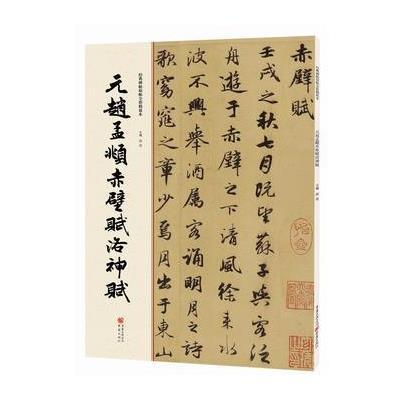 赤壁賦
壬戌之秋七月既望蘇子與客泛
舟遊于赤壁之下清風徐来水
波不興舉酒属客誦明月之詩
歌窈窕之章少焉月出於東山
元趙孟頫赤壁賦洛神賦